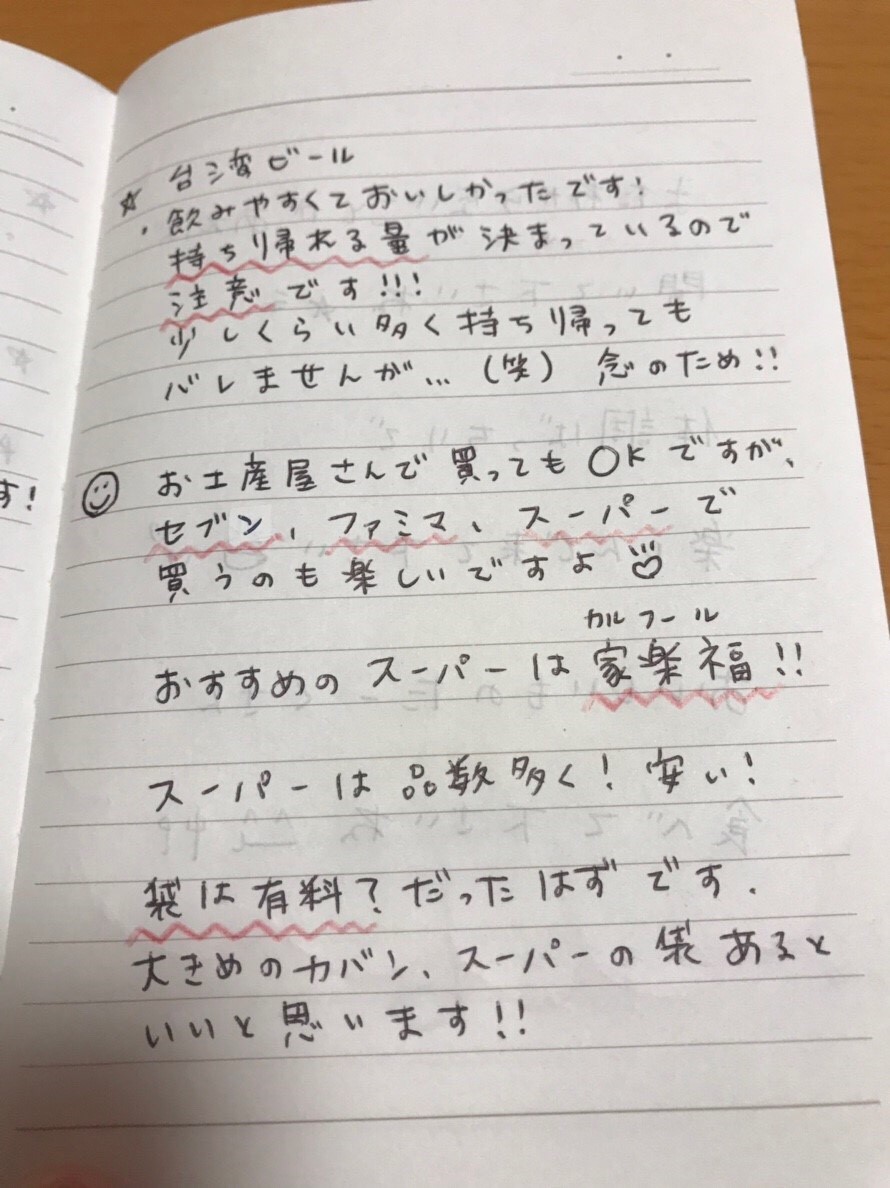 ☆ 台湾ビール
・飲みやすくておいしかったです!
持ち帰れる量が決まっているので
注意です!!!
少しくらい多く持ち帰っても
バレませんが…(笑) 念のため!!
お土産屋さんで買ってもOKですが、
セブン、ファミマ、スーパーで
買うのも楽しいですよ
カルフール
おすすめのスーパーは家楽福!!
スーパーは品数多く!安い!
袋は有料?だったはずです.
大きめのカバン、スーパーの袋あると
いいと思います!!
す!